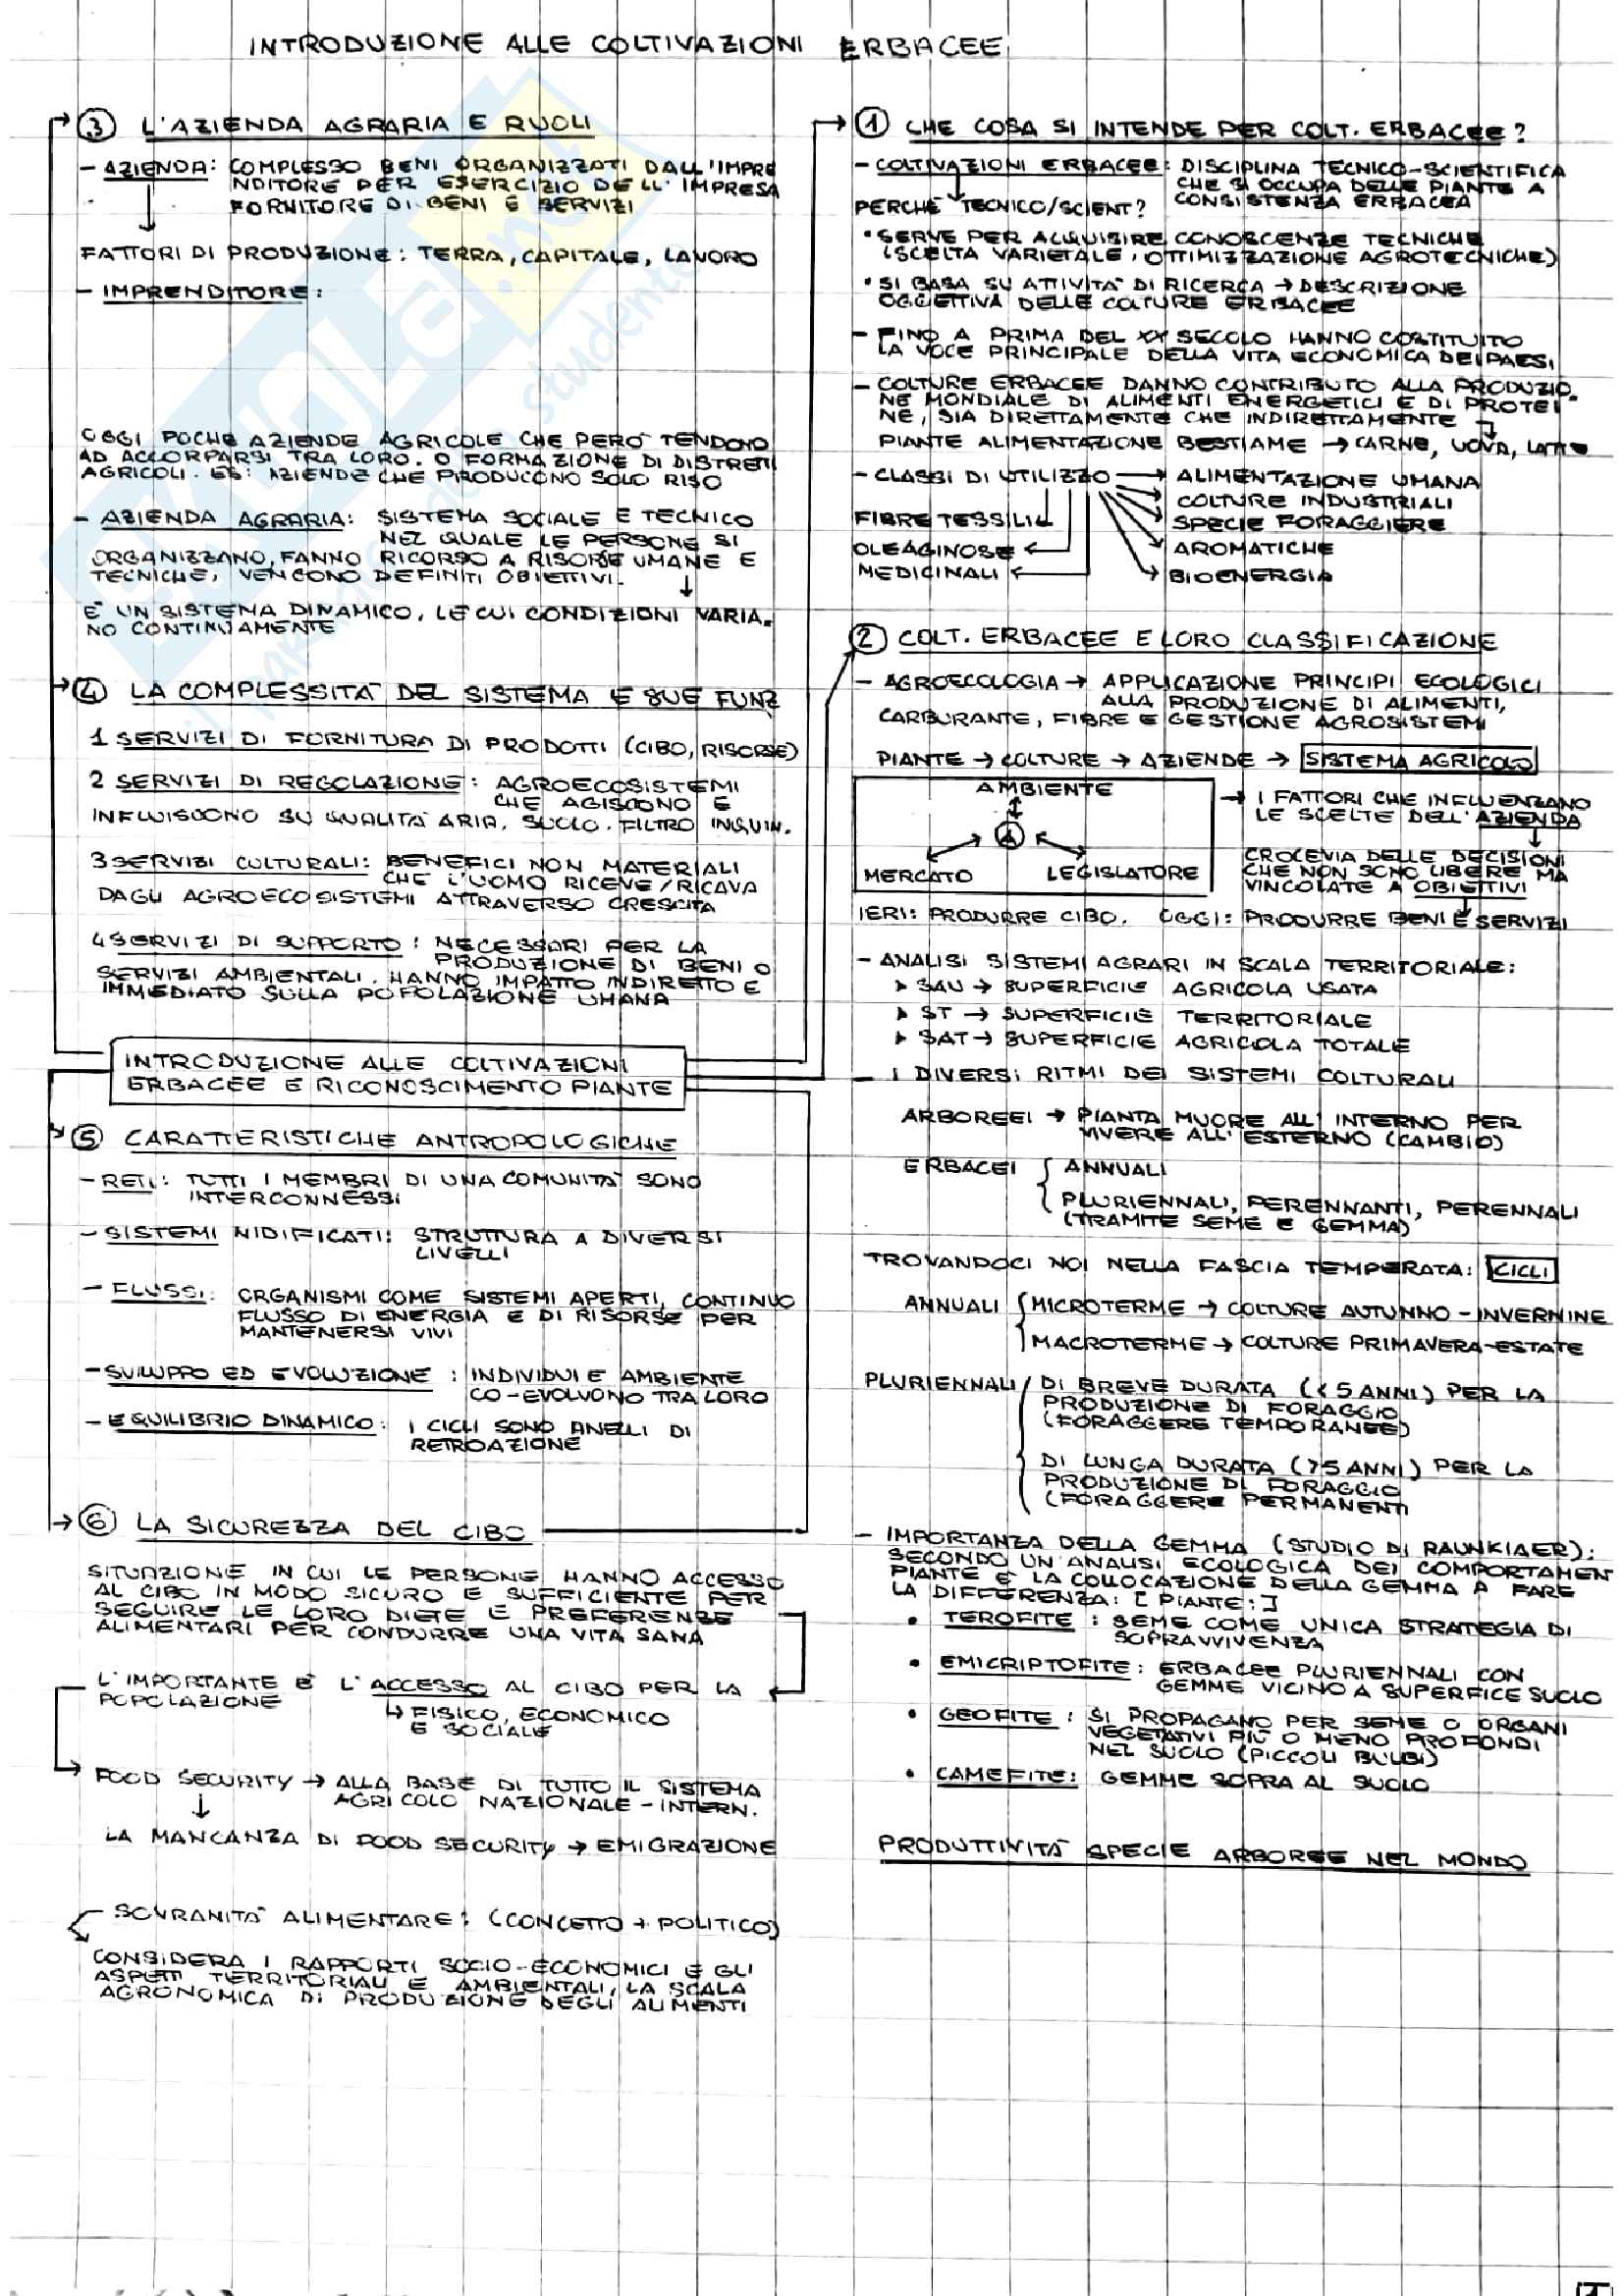 INTRODUZIONE ALLE COLTIVAZIONI ERBACEE
③ L'AZIENDA AGRARIA E RUOLI
- AZIENDA: COMPLESSO BENI ORGANIZZATI DALL'IMPRE
NDITORE PER ESERCIZIO DELL'IMPRESA
FORNITORE DI BENI E SERVIZI
FATTORI DI PRODUZIONE: TERRA, CAPITALE, LAVORO
- IMPRENDITORE:
OGGI POCHE AZIENDE AGRICOLE CHE PERÒ TENDONO
AD ACCORPARSI TRA LORO. O FORMAZIONE DI DISTRETTI
AGRICOLI. ES: AZIENDE CHE PRODUCONO SOLO RISO
- AZIENDA AGRARIA: SISTEMA SOCIALE E TECNICO
NEL QUALE LE PERSONE SI
ORGANIZZANO, FANNO RICORSO A RISORSE UMANE E
TECNICHE, VENGONO DEFINITI OBIETTIVI.
↓
E' UN SISTEMA DINAMICO, LE CUI CONDIZIONI VARIA-
NO CONTINUAMENTE
④ LA COMPLESSITÀ DEL SISTEMA E SUE FUNZ
1 SERVIZI DI FORNITURA DI PRODOTTI (CIBO, RISORSE)
2 SERVIZI DI REGOLAZIONE: AGROECOSISTEMI
CHE AGISCONO E
INFLUISCONO SU QUALITÀ ARIA, SUOLO. FILTRO INQUIN.
3 SERVIZI CULTURALI: BENEFICI NON MATERIALI
CHE L'UOMO RICEVE/RICAVA
DAGLI AGROECOSISTEMI ATTRAVERSO CRESCITA
4 SERVIZI DI SUPPORTO: NECESSARI PER LA
PRODUZIONE DI BENI O
SERVIZI AMBIENTALI. HANNO IMPATTO INDIRETTO E
IMMEDIATO SULLA POPOLAZIONE UMANA
INTRODUZIONE ALLE COLTIVAZIONI
ERBACEE E RICONOSCIMENTO PIANTE
⑤ CARATTERISTICHE ANTROPOLOGICHE
- RETI: TUTTI I MEMBRI DI UNA COMUNITÀ SONO
INTERCONNESSI
- SISTEMI NIDIFICATI: STRUTTURA A DIVERSI
LIVELLI
- FLUSSI: ORGANISMI COME SISTEMI APERTI, CONTINUO
FLUSSO DI ENERGIA E DI RISORSE PER
MANTENERSI VIVI
- SVILUPPO ED EVOLUZIONE: INDIVIDUI E AMBIENTE
CO-EVOLVONO TRA LORO
- EQUILIBRIO DINAMICO: I CICLI SONO ANELLI DI
RETROAZIONE
⑥ LA SICUREZZA DEL CIBO
SITUAZIONE IN CUI LE PERSONE HANNO ACCESSO
AL CIBO IN MODO SICURO E SUFFICIENTE PER
SEGUIRE LE LORO DIETE E PREFERENZE
ALIMENTARI PER CONDURRE UNA VITA SANA
L'IMPORTANTE È L'ACCESSO AL CIBO PER LA
POPOLAZIONE
↳ FISICO, ECONOMICO
E SOCIALE
FOOD SECURITY → ALLA BASE DI TUTTO IL SISTEMA
AGRICOLO NAZIONALE-INTERN.
↓
LA MANCANZA DI FOOD SECURITY → EMIGRAZIONE
SOVRANITÀ ALIMENTARE: (CONCETTO + POLITICO)
CONSIDERA I RAPPORTI SOCIO-ECONOMICI E GLI
ASPETTI TERRITORIALI E AMBIENTALI, LA SCALA
AGRONOMICA DI PRODUZIONE DEGLI ALIMENTI
① CHE COSA SI INTENDE PER COLT. ERBACEE?
- COLTIVAZIONI ERBACEE: DISCIPLINA TECNICO-SCIENTIFICA
CHE SI OCCUPA DELLE PIANTE A
CONSISTENZA ERBACEA
PERCHÈ TECNICO/SCIENT?
• SERVE PER ACQUISIRE CONOSCENZE TECNICHE
(SCELTA VARIETALE, OTTIMIZZAZIONE AGROTECNICHE)
• SI BASA SU ATTIVITÀ DI RICERCA → DESCRIZIONE
OGGETTIVA DELLE COLTURE ERBACEE
- FINO A PRIMA DEL XX SECOLO HANNO COSTITUITO
LA VOCE PRINCIPALE DELLA VITA ECONOMICA DEI PAESI
- COLTURE ERBACEE DANNO CONTRIBUTO ALLA PRODUZIO-
NE MONDIALE DI ALIMENTI ENERGETICI E DI PROTEI-
NE, SIA DIRETTAMENTE CHE INDIRETTAMENTE
PIANTE ALIMENTAZIONE BESTIAME → CARNE, UOVA, LATTE
- CLASSI DI UTILIZZO → ALIMENTAZIONE UMANA
COLTURE INDUSTRIALI
FIBRE TESSILI
SPECIE FORAGGIERE
OLEAGINOSE
AROMATICHE
MEDICINALI
BIOENERGIA
② COLT. ERBACEE E LORO CLASSIFICAZIONE
- AGROECOLOGIA → APPLICAZIONE PRINCIPI ECOLOGICI
ALLA PRODUZIONE DI ALIMENTI,
CARBURANTE, FIBRE E GESTIONE AGROSISTEMI
PIANTE → COLTURE → AZIENDE → SISTEMA AGRICOLO
AMBIENTE
A
MERCATO
LEGISLATORE
→ I FATTORI CHE INFLUENZANO
LE SCELTE DELL'AZIENDA
CROCEVIA DELLE DECISIONI
CHE NON SONO LIBERE MA
VINCOLATE A OBIETTIVI
IERI: PRODURRE CIBO. OGGI: PRODURRE BENI E SERVIZI
- ANALISI SISTEMI AGRARI IN SCALA TERRITORIALE:
▸ SAU → SUPERFICIE AGRICOLA USATA
▸ ST → SUPERFICIE TERRITORIALE
▸ SAT → SUPERFICIE AGRICOLA TOTALE
- I DIVERSI RITMI DEI SISTEMI COLTURALI
ARBOREEI → PIANTA MUORE ALL'INTERNO PER
VIVERE ALL'ESTERNO (CAMBIO)
ERBACEI { ANNUALI
PLURIENNALI, PERENNANTI, PERENNALI
(TRAMITE SEME E GEMMA)
TROVANDOCI NOI NELLA FASCIA TEMPERATA: CICLI
ANNUALI { MICROTERME → COLTURE AUTUNNO-INVERNINE
MACROTERME → COLTURE PRIMAVERA-ESTATE
PLURIENNALI { DI BREVE DURATA (<5 ANNI) PER LA
PRODUZIONE DI FORAGGIO
(FORAGGERE TEMPORANEE)
DI LUNGA DURATA (>5 ANNI) PER LA
PRODUZIONE DI FORAGGIO
(FORAGGERE PERMANENTI
- IMPORTANZA DELLA GEMMA (STUDIO DI RAUNKIAER):
SECONDO UN'ANALISI ECOLOGICA DEI COMPORTAMEN
PIANTE È LA COLLOCAZIONE DELLA GEMMA A FARE
LA DIFFERENZA: [PIANTE:]
• TEROFITE: SEME COME UNICA STRATEGIA DI
SOPRAVVIVENZA
• EMICRIPTOFITE: ERBACEE PLURIENNALI CON
GEMME VICINO A SUPERFICE SUOLO
• GEOFITE: SI PROPAGANO PER SEME O ORGANI
VEGETATIVI PIÙ O MENO PROFONDI
NEL SUOLO (PICCOLI BULBI)
• CAMEFITE: GEMME SOPRA AL SUOLO
PRODUTTIVITÀ SPECIE ARBOREE NEL MONDO